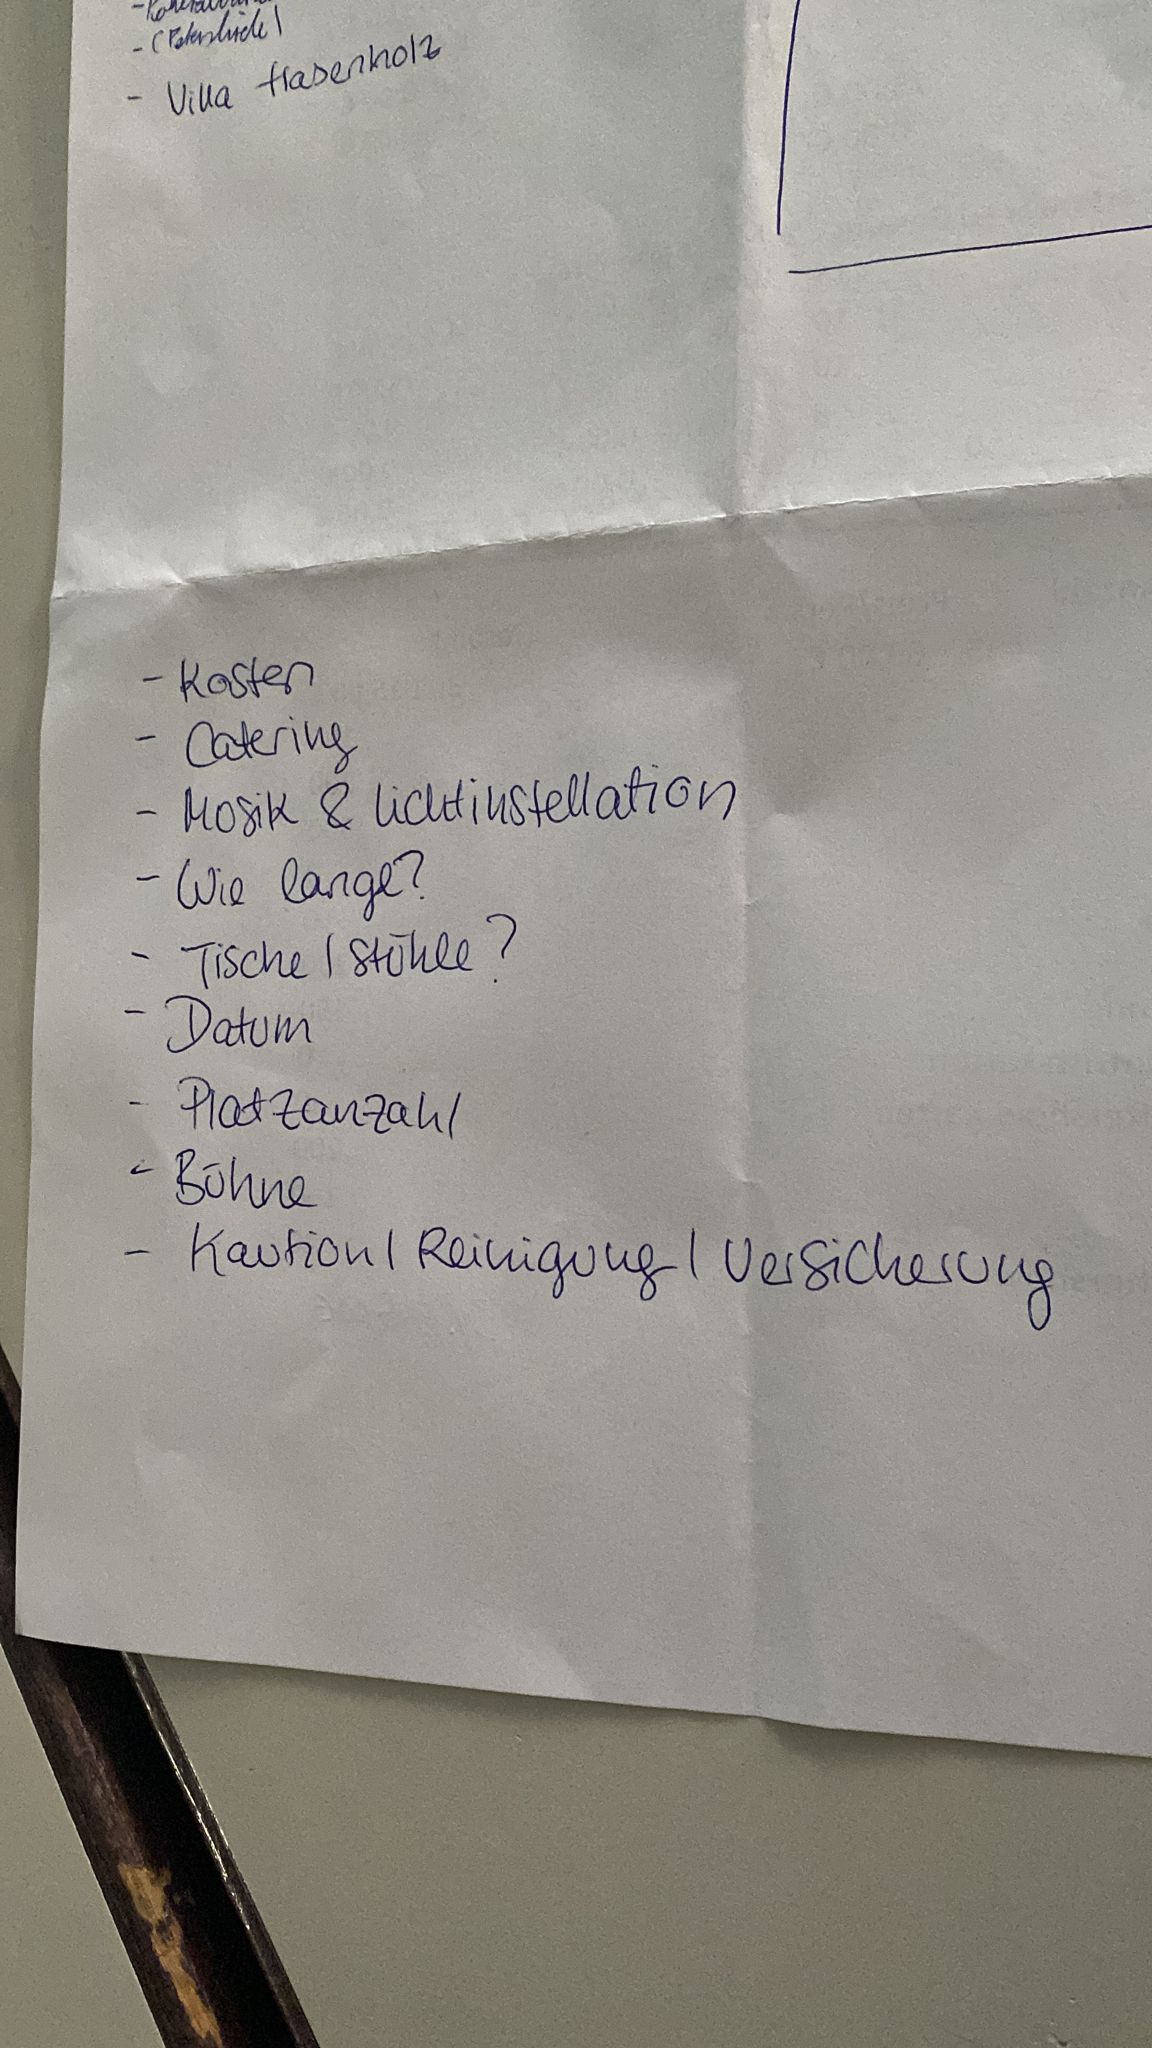 - Villa Hasenholz
- Kosten
- Catering
- Mosik & Lichtinstellation
- Wie lange?
- Tische / Stühle?
- Datum
- Platzanzahl
- Bühne
- Kaution / Reinigung / Versicherung